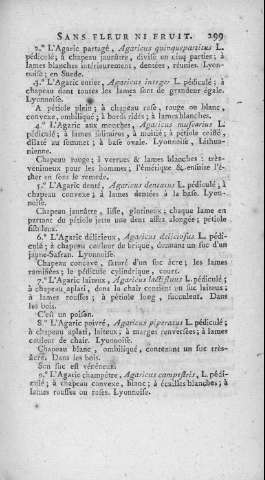 SANS FLEUR NI FRUIT. 299
2.° L'Agaric partagé, Agaricus quinquepartitus L.
pédiculé; à chapeau jaunâtre, divisé en cinq parties; à
lames blanches intérieurement, dentées, réunies. Lyon-
noise; en Suede.
3.° L'Agaric entier, Agaricus integer L. pédiculé; à
chapeau dont toutes les lames sont de grandeur égale.
Lyonnoise.
A pétiole plein; à chapeau rose, rouge ou blanc,
convexe, ombiliqué; à bords ridés; à lames blanches.
4.° L'Agaric aux mouches, Agaricus muscarius L.
pédiculé; à lames solitaires, à moitié; à pétiole coiffé,
dilaté au sommet; à base ovale. Lyonnoise, Lithua-
nienne.
Chapeau rouge; à verrues & lames blanches: très-
venimeux pour les hommes; l'émétique & ensuite l'é-
ther en sont le remede.
5.° L'Agaric denté, Agaricus dentatus L. pédiculé, à
chapeau convexe; à lames dentées à la base. Lyon-
noise.
Chapeau jaunâtre, lisse, glutineux; chaque lame en
partant du pétiole jette une dent assez alongée; pétiole
fistuleux.
6.° L'Agaric délicieux, Agaricus deliciosus L. pédi-
culé; à chapeau couleur de brique, donnant un suc d'un
jaune-Safran. Lyonnoise.
Chapeau concave, saturé d'un suc âcre; les lames
ramifiées; le pédicule cylindrique, court.
7.° L'Agaric laiteux, Agaricus lactifluus L. pédiculé;
à chapeau aplati, dont la chair contient un suc laiteux;
à lames rousses; à pétiole long, succulent. Dans les
bois.
C'est un poison.
8.° L'Agaric poivré, Agaricus piperatus L. pédiculé;
à chapeau aplati, laiteux; à marges renversées; à lames
couleur de chair. Lyonnoise.
Chapeau blanc, ombiliqué, contenant un suc très-
âcre. Dans les bois.
Son suc est vénéneux.
9.° L'Agaric champêtre, Agaricus campestris, L. pédi-
culé; à chapeau convexe, blanc; à écailles blanches; à
lames rousses ou roses. Lyonnoise.